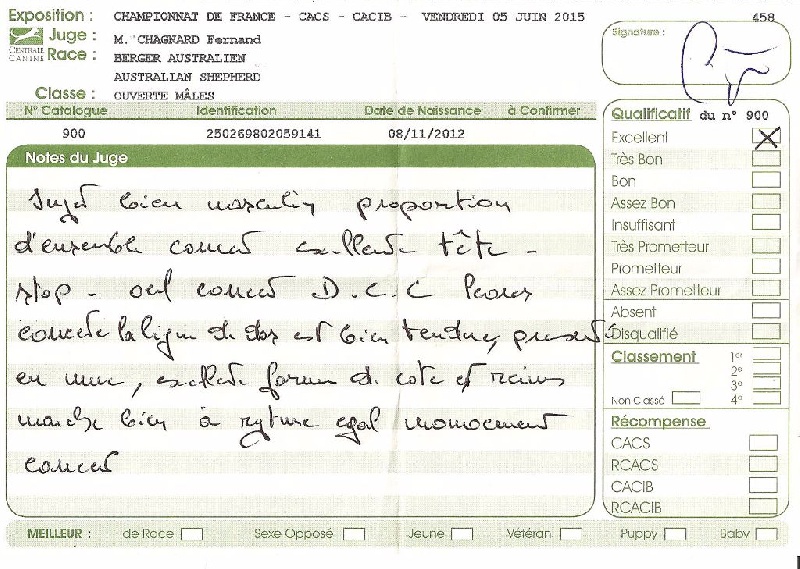 Exposition : CHAMPIONNAT DE FRANCE - CACS - CACIB - VENDREDI 05 JUIN 2015
458
CENTRALE CANINE
Juge : M. CHAGNARD Fernand
Race : BERGER AUSTRALIEN
AUSTRALIAN SHEPHERD
Classe : OUVERTE MÂLES
Signature :
N° Catalogue Identification Date de Naissance à Confirmer
900 250269802059141 08/11/2012
Notes du Juge
Sujet bien masculin proportion
d'ensemble correct excellente tête -
stop - oeil correct D.C.C
correcte la ligne de dos est bien tendue, présenté
en mue, excellente forme de cote et reins
marche bien à rytme egal mouvement
correct
Qualificatif du n° 900
Excellent X
Très Bon
Bon
Assez Bon
Insuffisant
Très Prometteur
Prometteur
Assez Prometteur
Absent
Disqualifié
Classement 1er
2e
3e
Non Classé 4e
Récompense
CACS
RCACS
CACIB
RCACIB
MEILLEUR : de Race Sexe Opposé Jeune Vétéran Puppy Baby